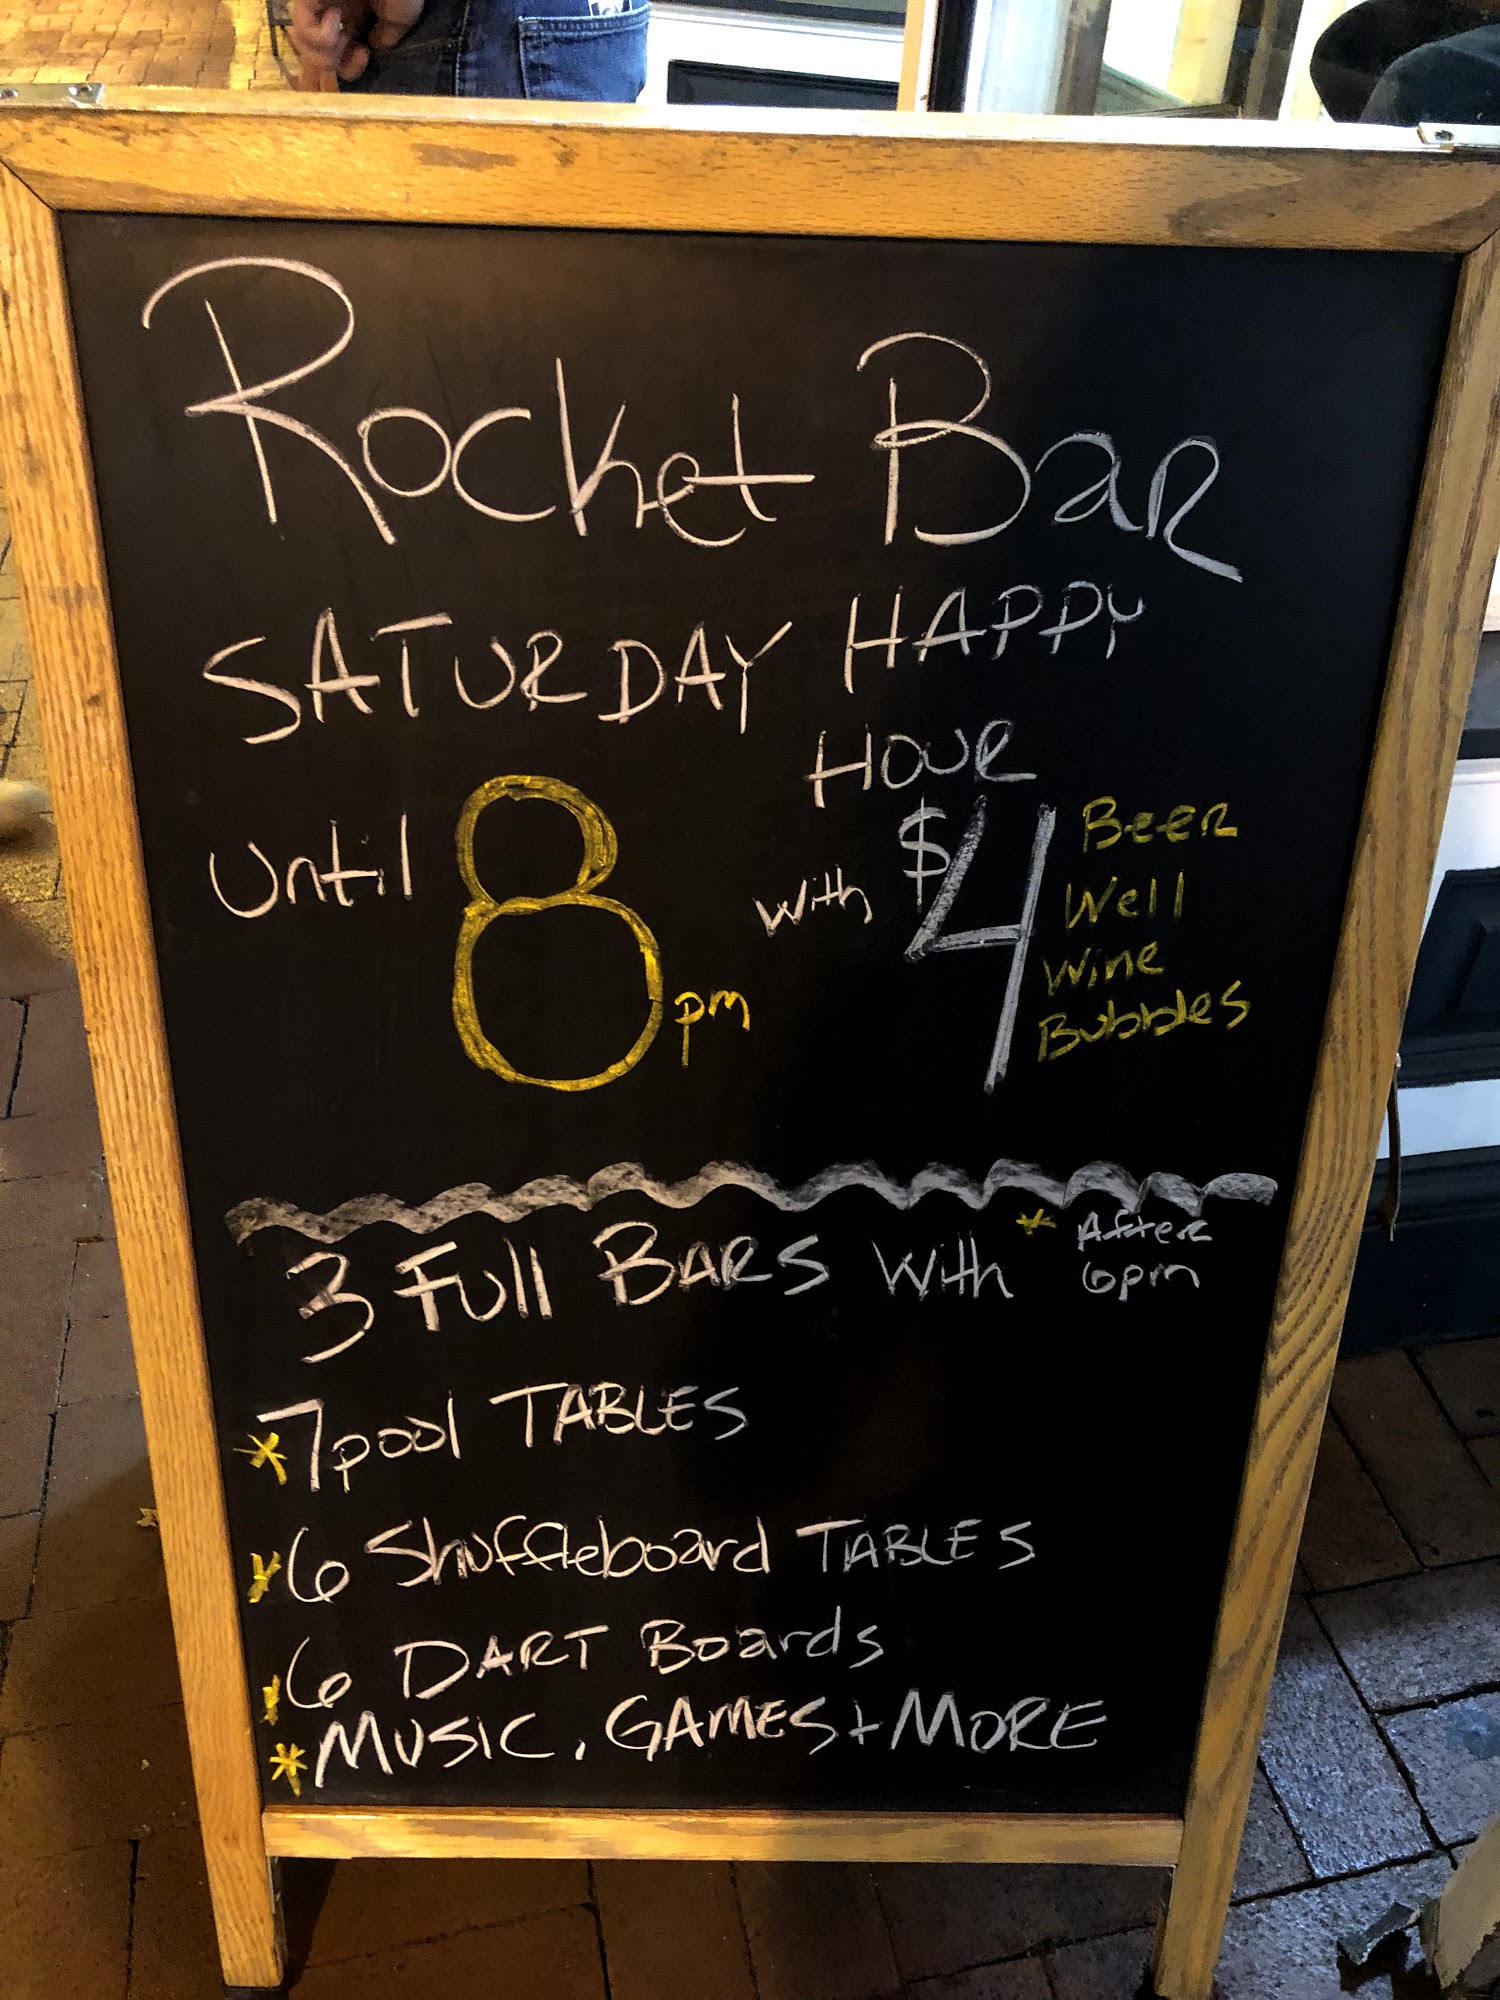 Rocket Bar
SATURDAY HAPPY
HOUR
until 8pm with $4
Beer
Well
Wine
Bubbles
3 Full BARS With * After
6pm
*7 pool TABLES
*6 Shuffleboard TABLES
*6 DART Boards
*MUSIC, GAMES + MORE